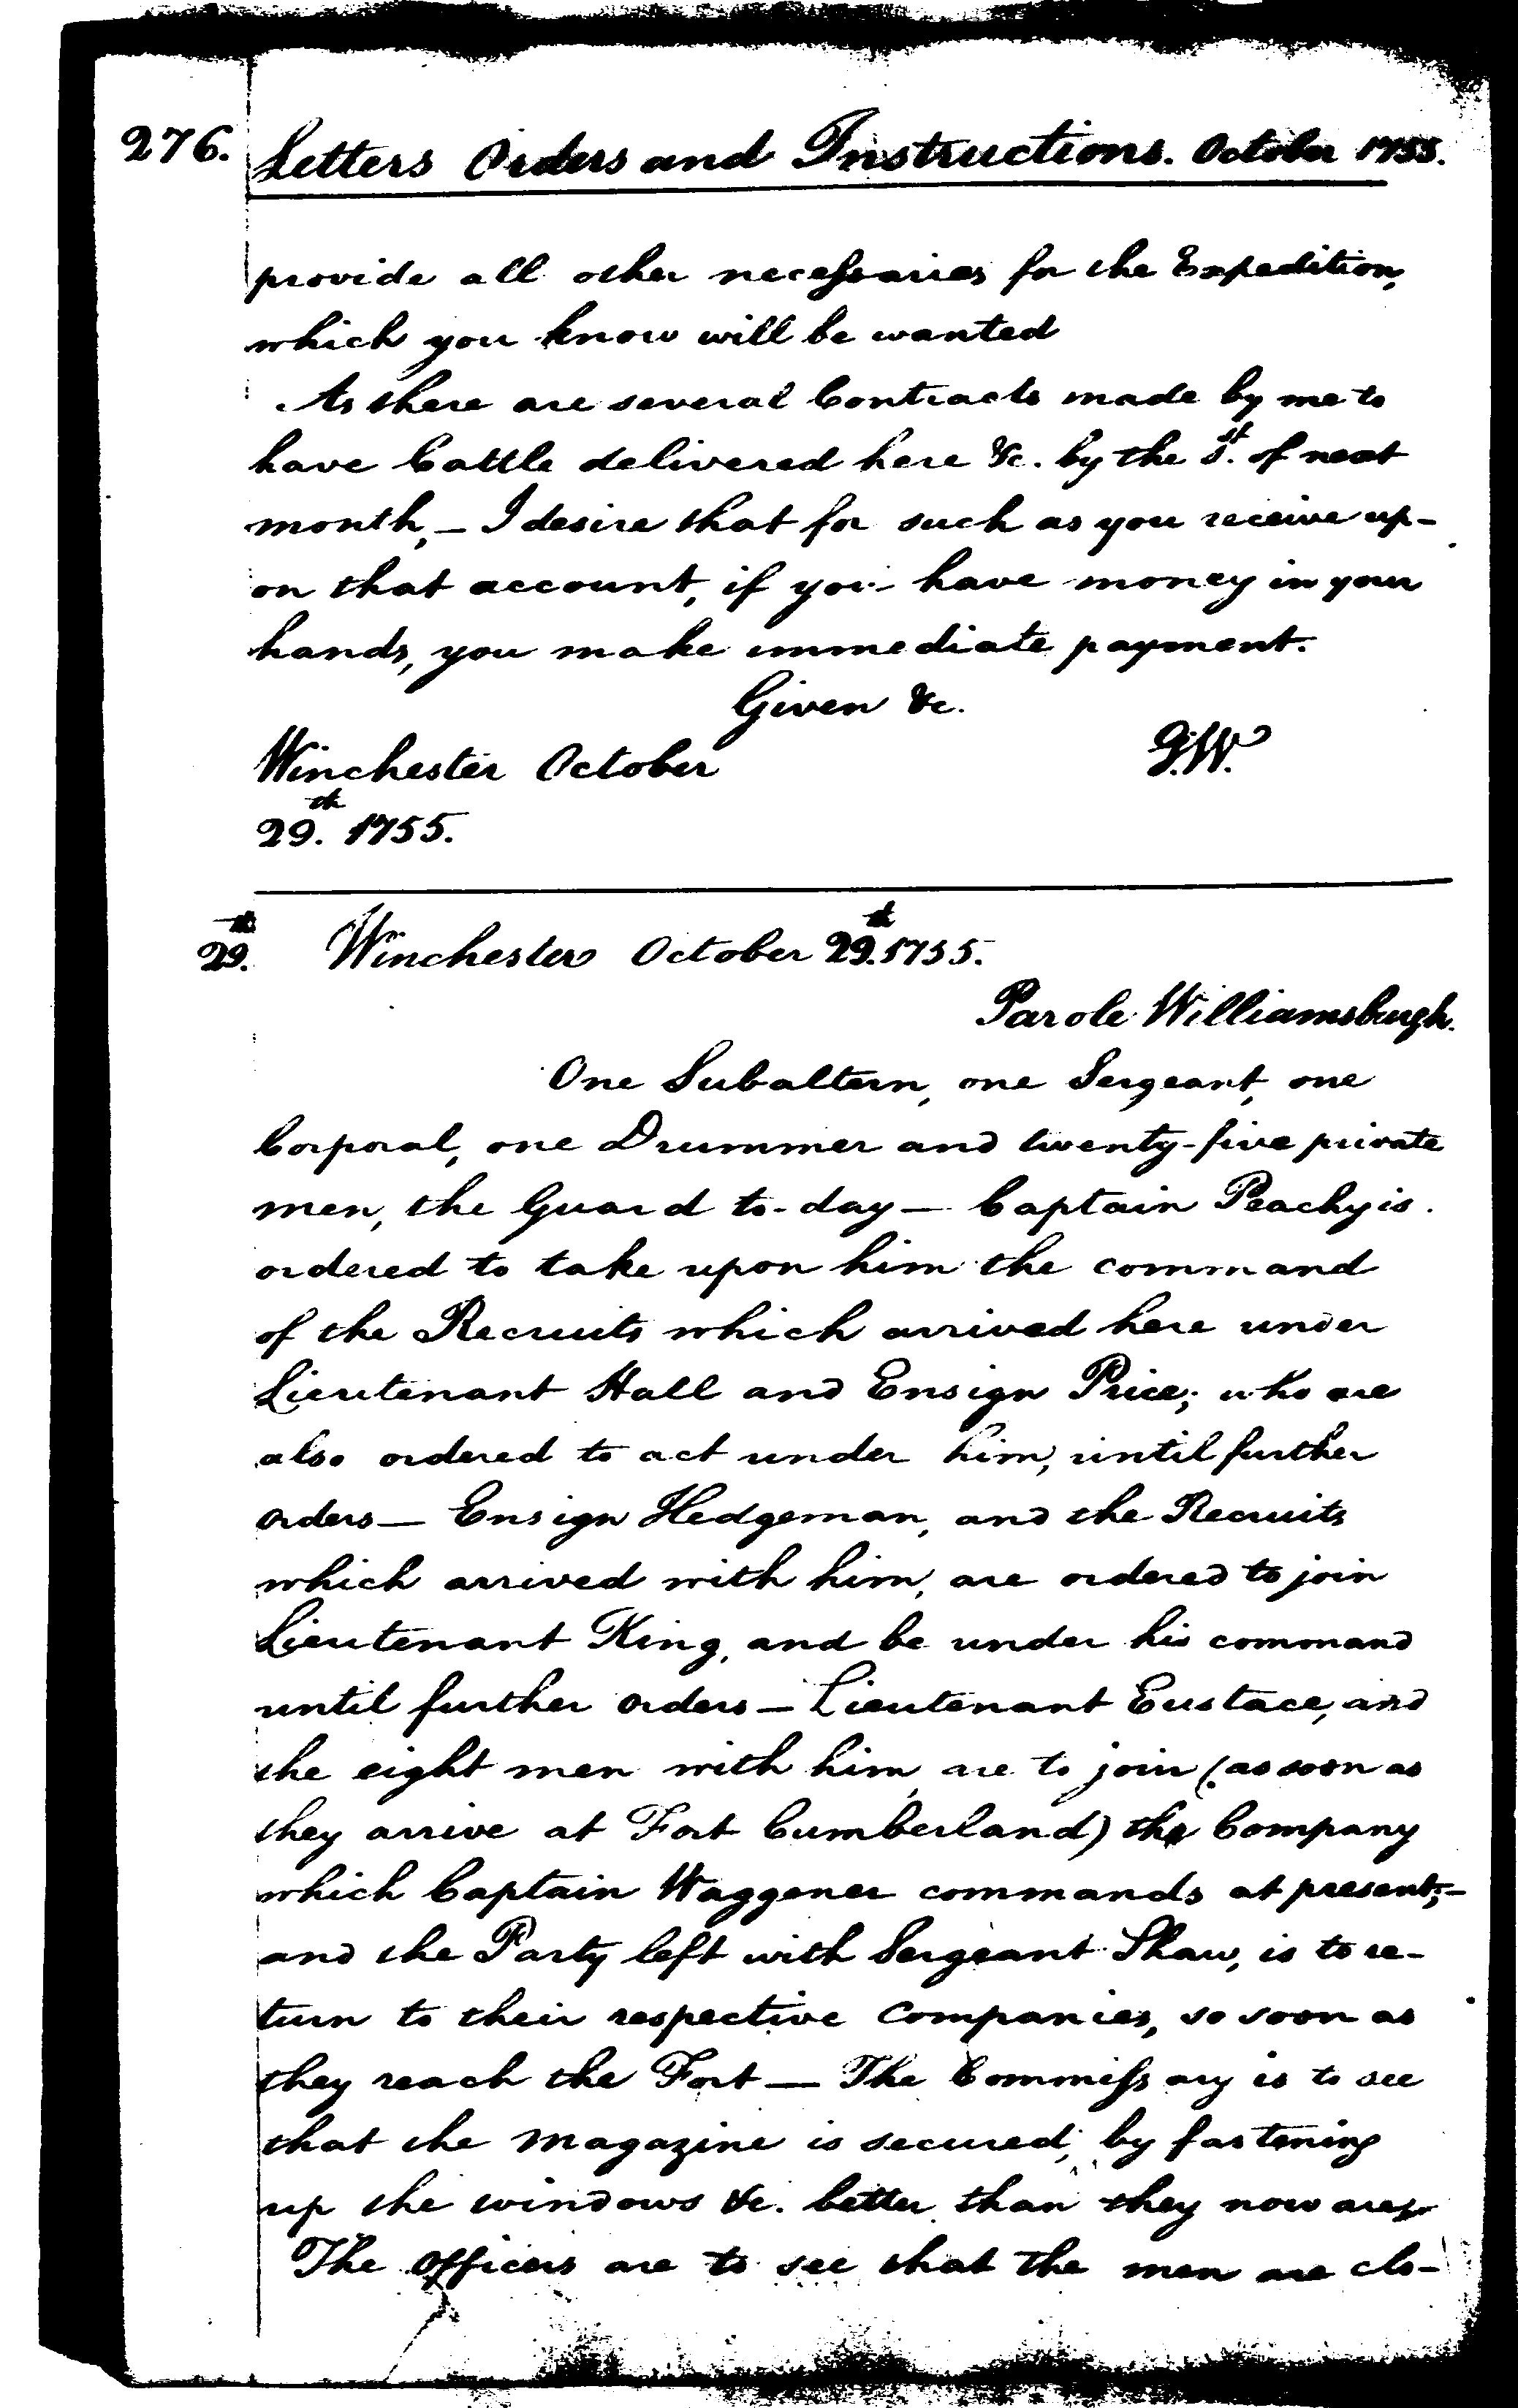 276. Letters Orders and Instructions. October 1755.
provide all other necessaries for the Expedition,
which you know will be wanted
As there are several Contracts made by me to
have Cattle delivered here &c. by the 1st. of next
month,— I desire that for such as you receive up-
on that account, if you have money in your
hands, you make immediate payment.
Given &c.
G.W.
Winchester October
29th. 1755.
29th. Winchester October 29th. 1755.
Parole Williamsburgh.
One Subaltern, one Sergeant, one
Corporal, one Drummer and twenty-five private
men, the Guard to-day— Captain Peachy is
ordered to take upon him the command
of the Recruits which arrived here under
Lieutenant Hall and Ensign Price; who are
also ordered to act under him, until further
orders— Ensign Hedgeman, and the Recruits
which arrived with him, are ordered to join
Lieutenant King, and be under his command
until further orders— Lieutenant Eustace, and
the eight men with him, are to join (as soon as
they arrive at Fort Cumberland) the Company
which Captain Waggener commands at present;—
and the Party left with Sergeant Shaw, is to re-
turn to their respective Companies, so soon as
they reach the Fort— The Commissary is to see
that the magazine is secured, by fastening
up the windows &c. better than they now are,
The Officers are to see that the men are clo-